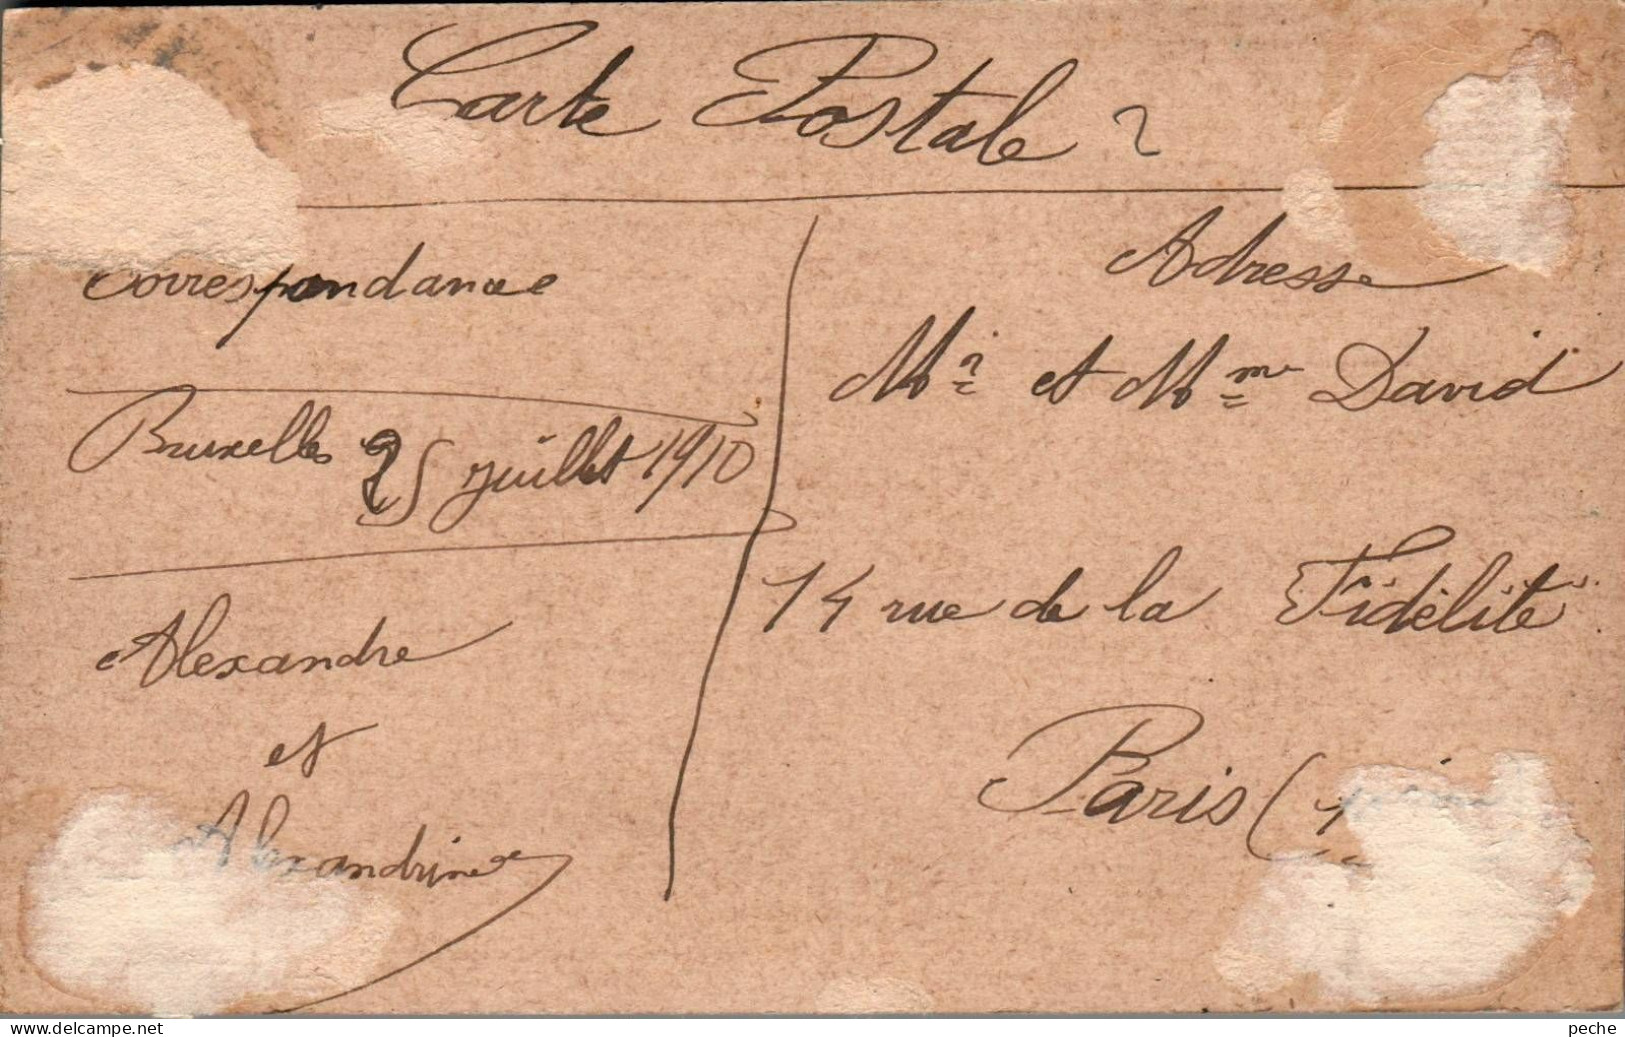 Carte Postale
Correspondance
Bruxelles 25 juillet 1910
Alexandre
et
Alexandrine
Adresse
Mr et Mme David
14 rue de la Fidélité
Paris (
peche